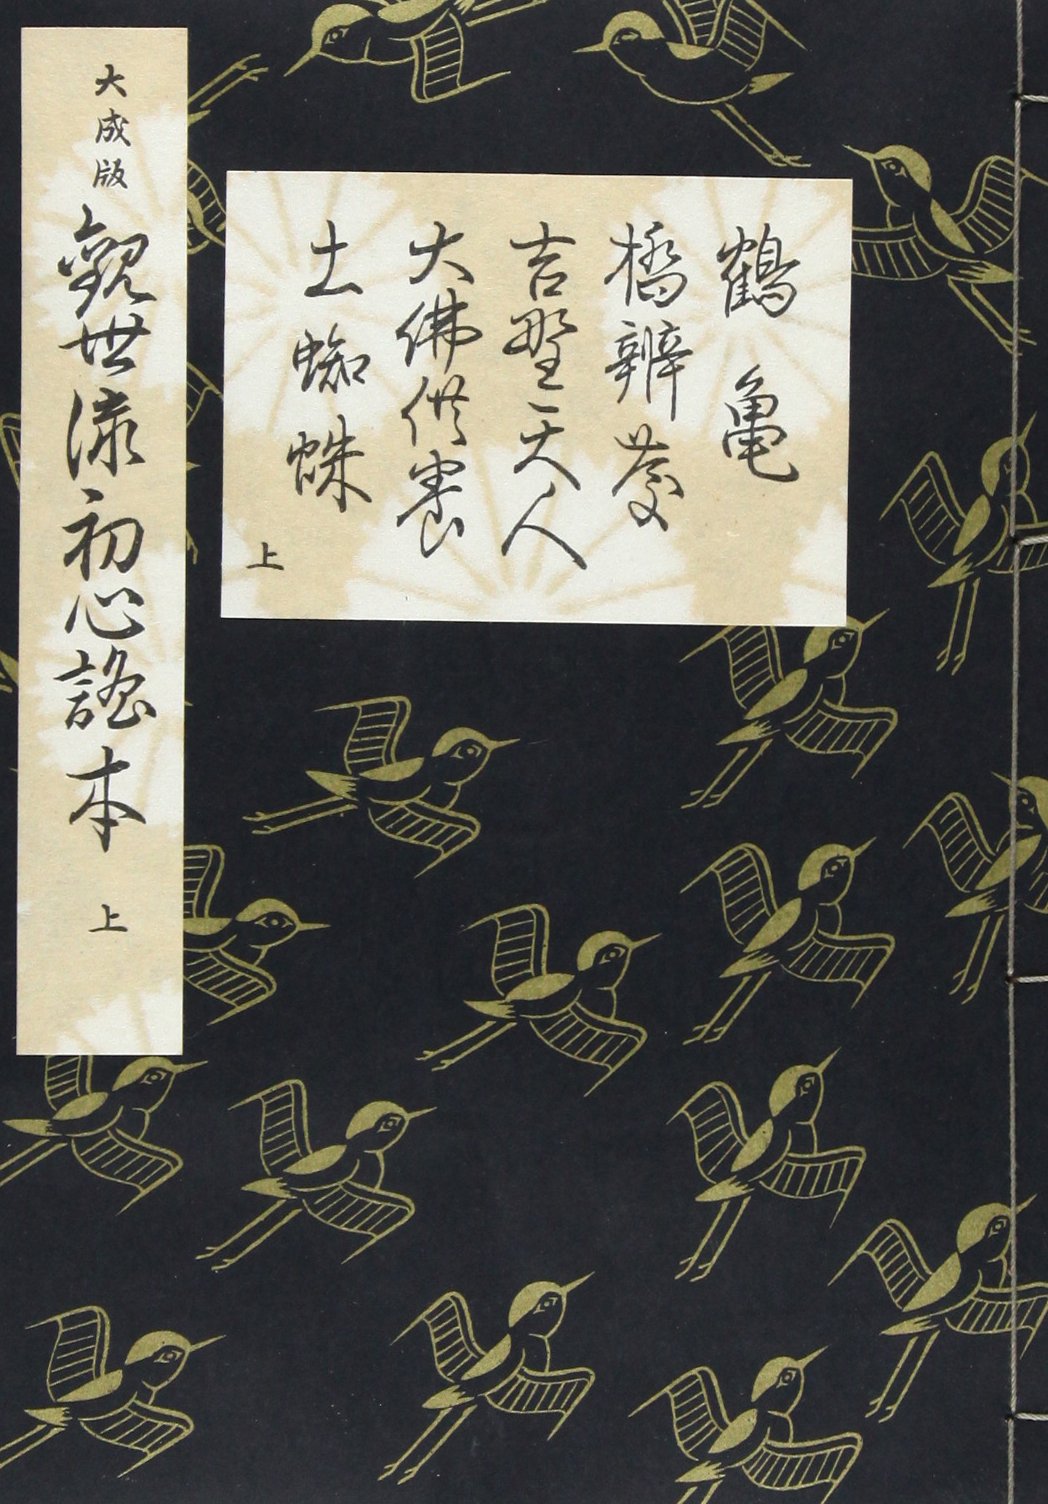 鶴亀
橋辨慶
吉野天人
大佛供養
土蜘蛛
上
大成版
觀世流初心謡本
上